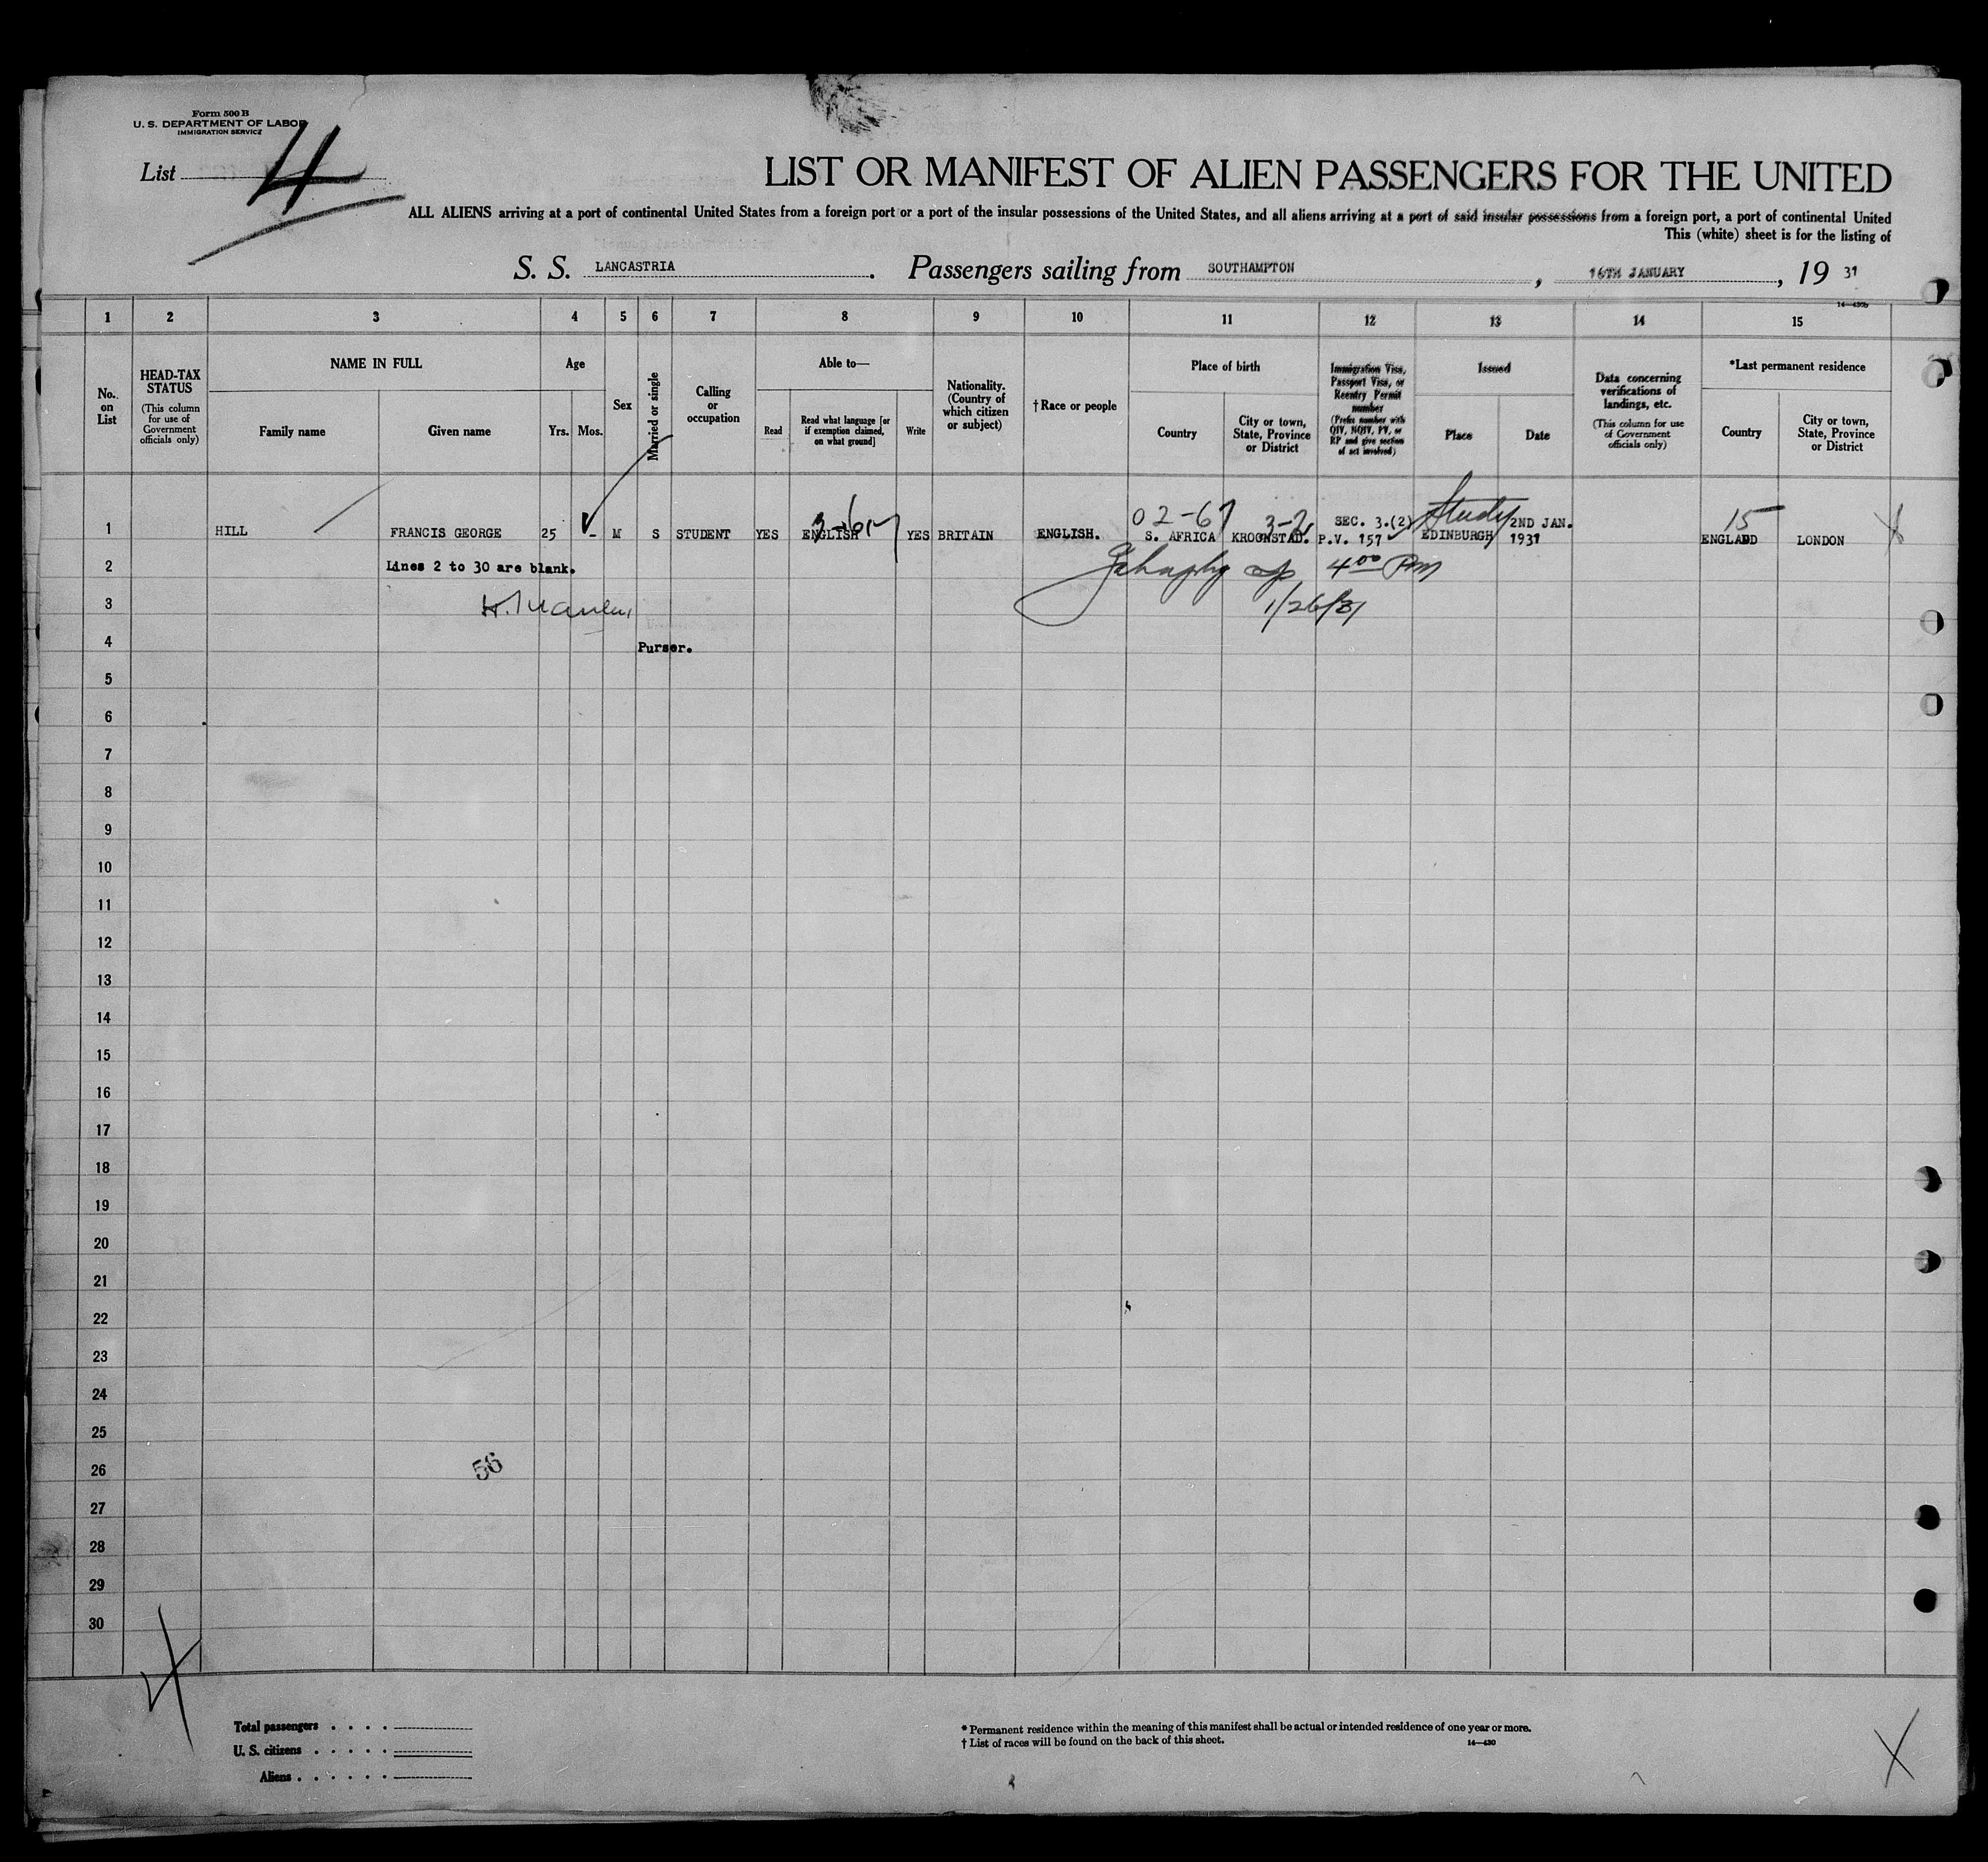 Form 500 B
U. S. DEPARTMENT OF LABOR
IMMIGRATION SERVICE
List 4
LIST OR MANIFEST OF ALIEN PASSENGERS FOR THE UNITED
ALL ALIENS arriving at a port of continental United States from a foreign port or a port of the insular possessions of the United States, and all aliens arriving at a port of said insular possessions from a foreign port, a port of continental United
This (white) sheet is for the listing of
S. S. LANCASTRIA. Passengers sailing from SOUTHAMPTON, 16TH JANUARY, 19 31
14—430b
1 2 3 4 5 6 7 8 9 10 11 12 13 14 15
No. on List
HEAD-TAX STATUS
(This column for use of Government officials only)
NAME IN FULL
Family name
Given name
Age
Yrs. Mos.
Sex
Married or single
Calling or occupation
Able to—
Read
Read what language [or if exemption claimed, on what ground]
Write
Nationality. (Country of which citizen or subject)
†Race or people
Place of birth
Country
City or town, State, Province or District
Immigration Visa, Passport Visa, or Reentry Permit number
(Prefix number with QIV, NQIV, PV, or RP and give section of act involved)
Issued
Place
Date
Data concerning verifications of landings, etc.
(This column for use of Government officials only)
*Last permanent residence
Country
City or town, State, Province or District
02-67 3-2 SEC. 3.(2) Study 2ND JAN. 15
1 HILL FRANCIS GEORGE 25 - M S STUDENT YES ENGLISH YES BRITAIN ENGLISH. S. AFRICA KROONSTAD. P.V. 157 EDINBURGH 1931 ENGLAND LONDON
2 Lines 2 to 30 are blank. 4 00 PM
3 1/26/31
4 Purser.
5
6
7
8
9
10
11
12
13
14
15
16
17
18
19
20
21
22
23
24
25
26 56
27
28
29
30
Total passengers . . . .
U. S. citizens . . . . .
Aliens . . . . . .
* Permanent residence within the meaning of this manifest shall be actual or intended residence of one year or more.
† List of races will be found on the back of this sheet.
14—430
X